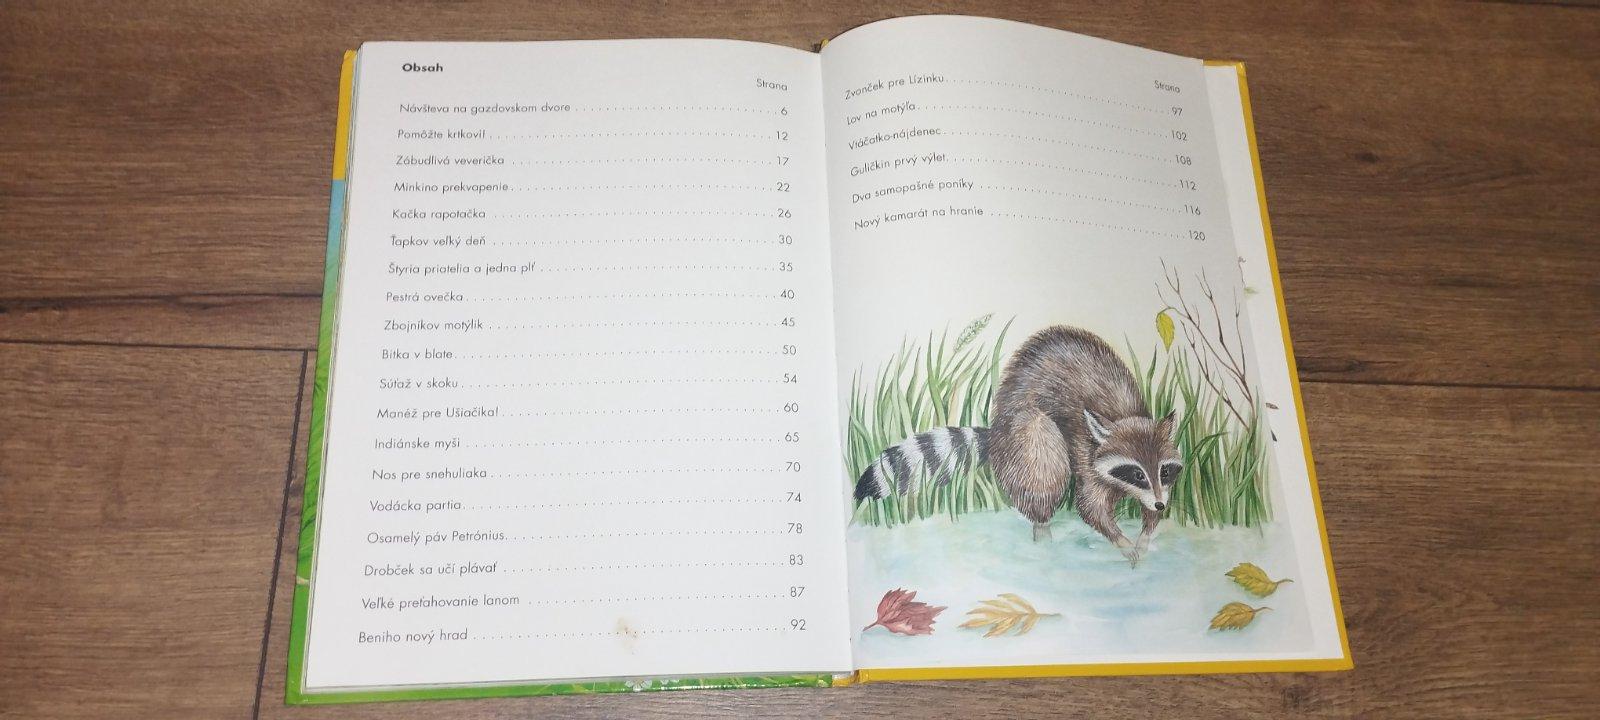 Obsah
Strana
Návšteva na gazdovskom dvore 6
Pomôžte krtkovi! 12
Zábudlivá veverička 17
Minkino prekvapenie 22
Kačka rapotačka 26
Ťapkov veľký deň 30
Štyria priatelia a jedna plť 35
Pestrá ovečka 40
Zbojníkov motýlik 45
Bitka v blate 50
Súťaž v skoku 54
Manéž pre Ušiačika! 60
Indiánske myši 65
Nos pre snehuliaka 70
Vodácka partia 74
Osamelý páv Petrónius 78
Drobček sa učí plávať 83
Veľké preťahovanie lanom 87
Beniho nový hrad 92
Strana
Zvonček pre Lízinku 97
Lov na motýľa 102
Vtáčatko-nájdenec 108
Guličkin prvý výlet 112
Dva samopašné poníky 116
Nový kamarát na hranie 120